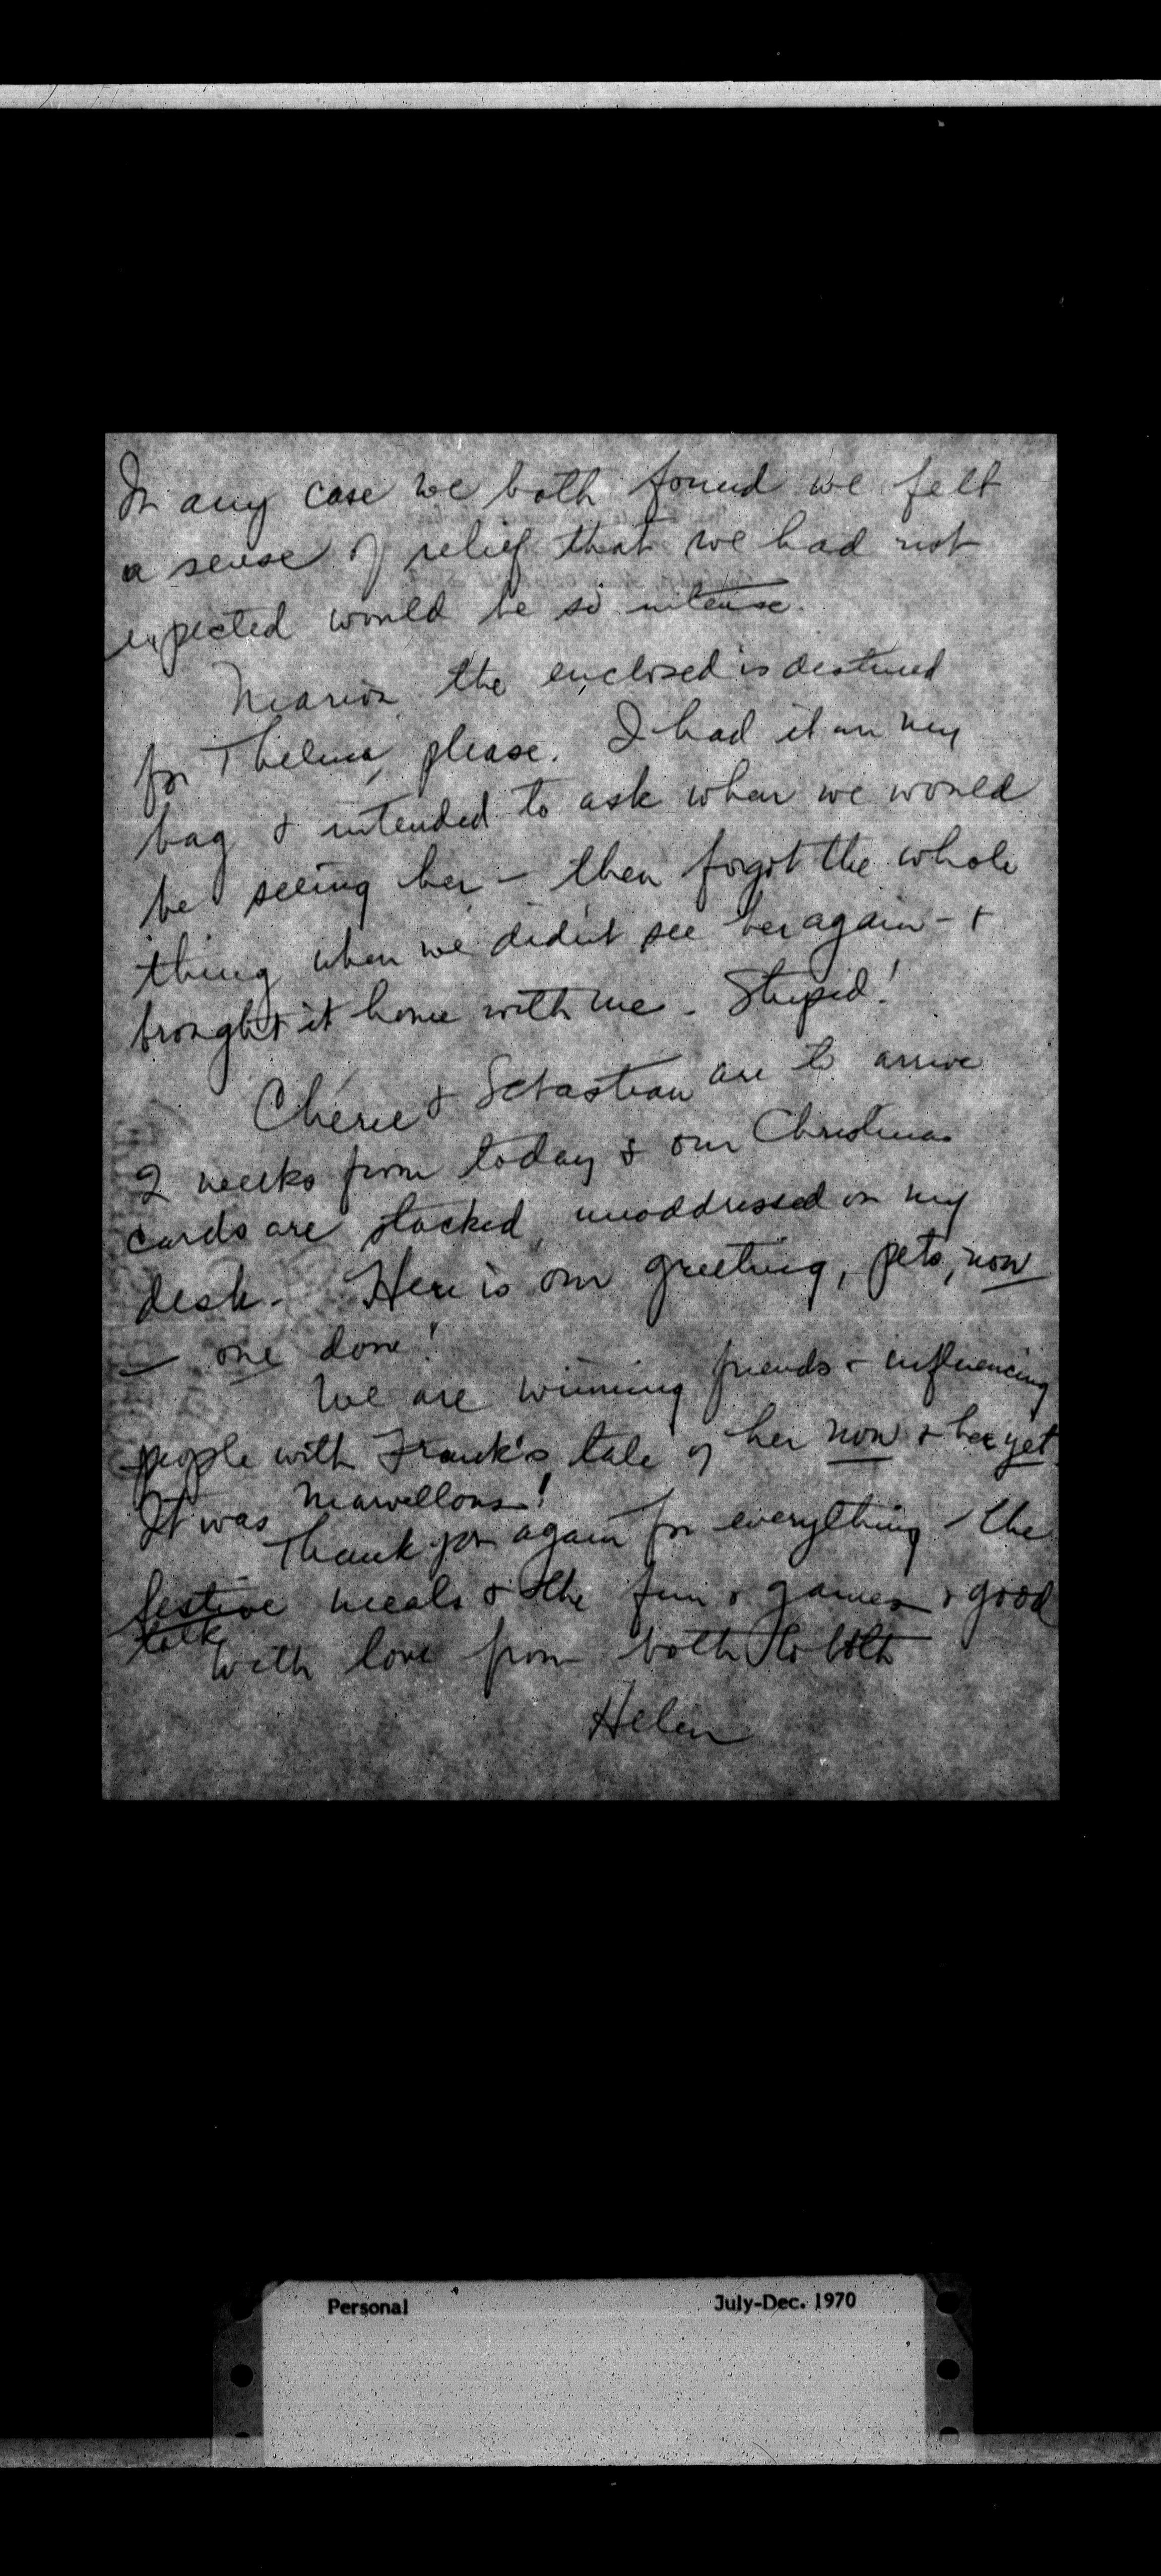 In any case we both found we felt
a sense of relief that we had not
expected would be so intense.
Marion, the enclosed is destined
for Thelma, please. I had it in my
bag & intended to ask when we would
be seeing her - then forgot the whole
thing when we didn't see her again - &
brought it home with me - Stupid!
Chérie & Sebastian are to arrive
2 weeks from today & our Christmas
cards are stacked, unaddressed on my
desk. Here is our greeting, pets, now
- one done!
We are winning friends & influencing
people with Frank's tale of her now & her yet.
It was marvellous!
Thank you again for everything - the
festive meals & the fun & games & good
talk
With love from both to both
Helen
Personal
July-Dec. 1970